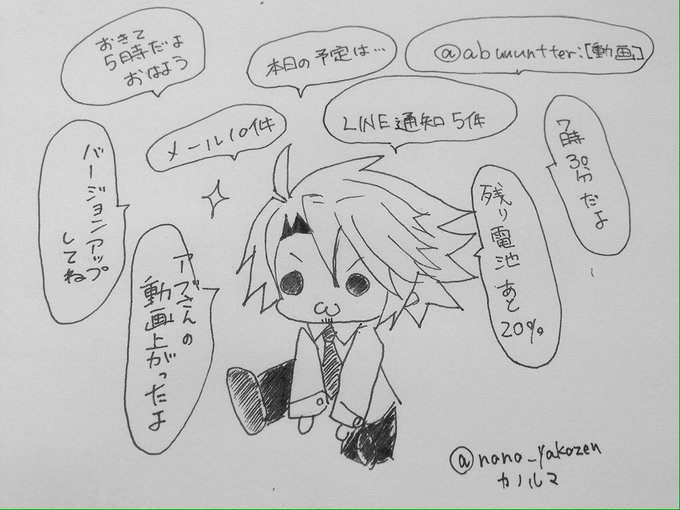 おきて
5時だよ
おはよう
本日の予定は…
@abuuuntter:[動画]
メール10件
LINE通知5件
7時30分だよ
バージョンアップ
してね
アブさんの
動画上がったよ
残り電池あと
20%
@nano_yakozen
カノルマ